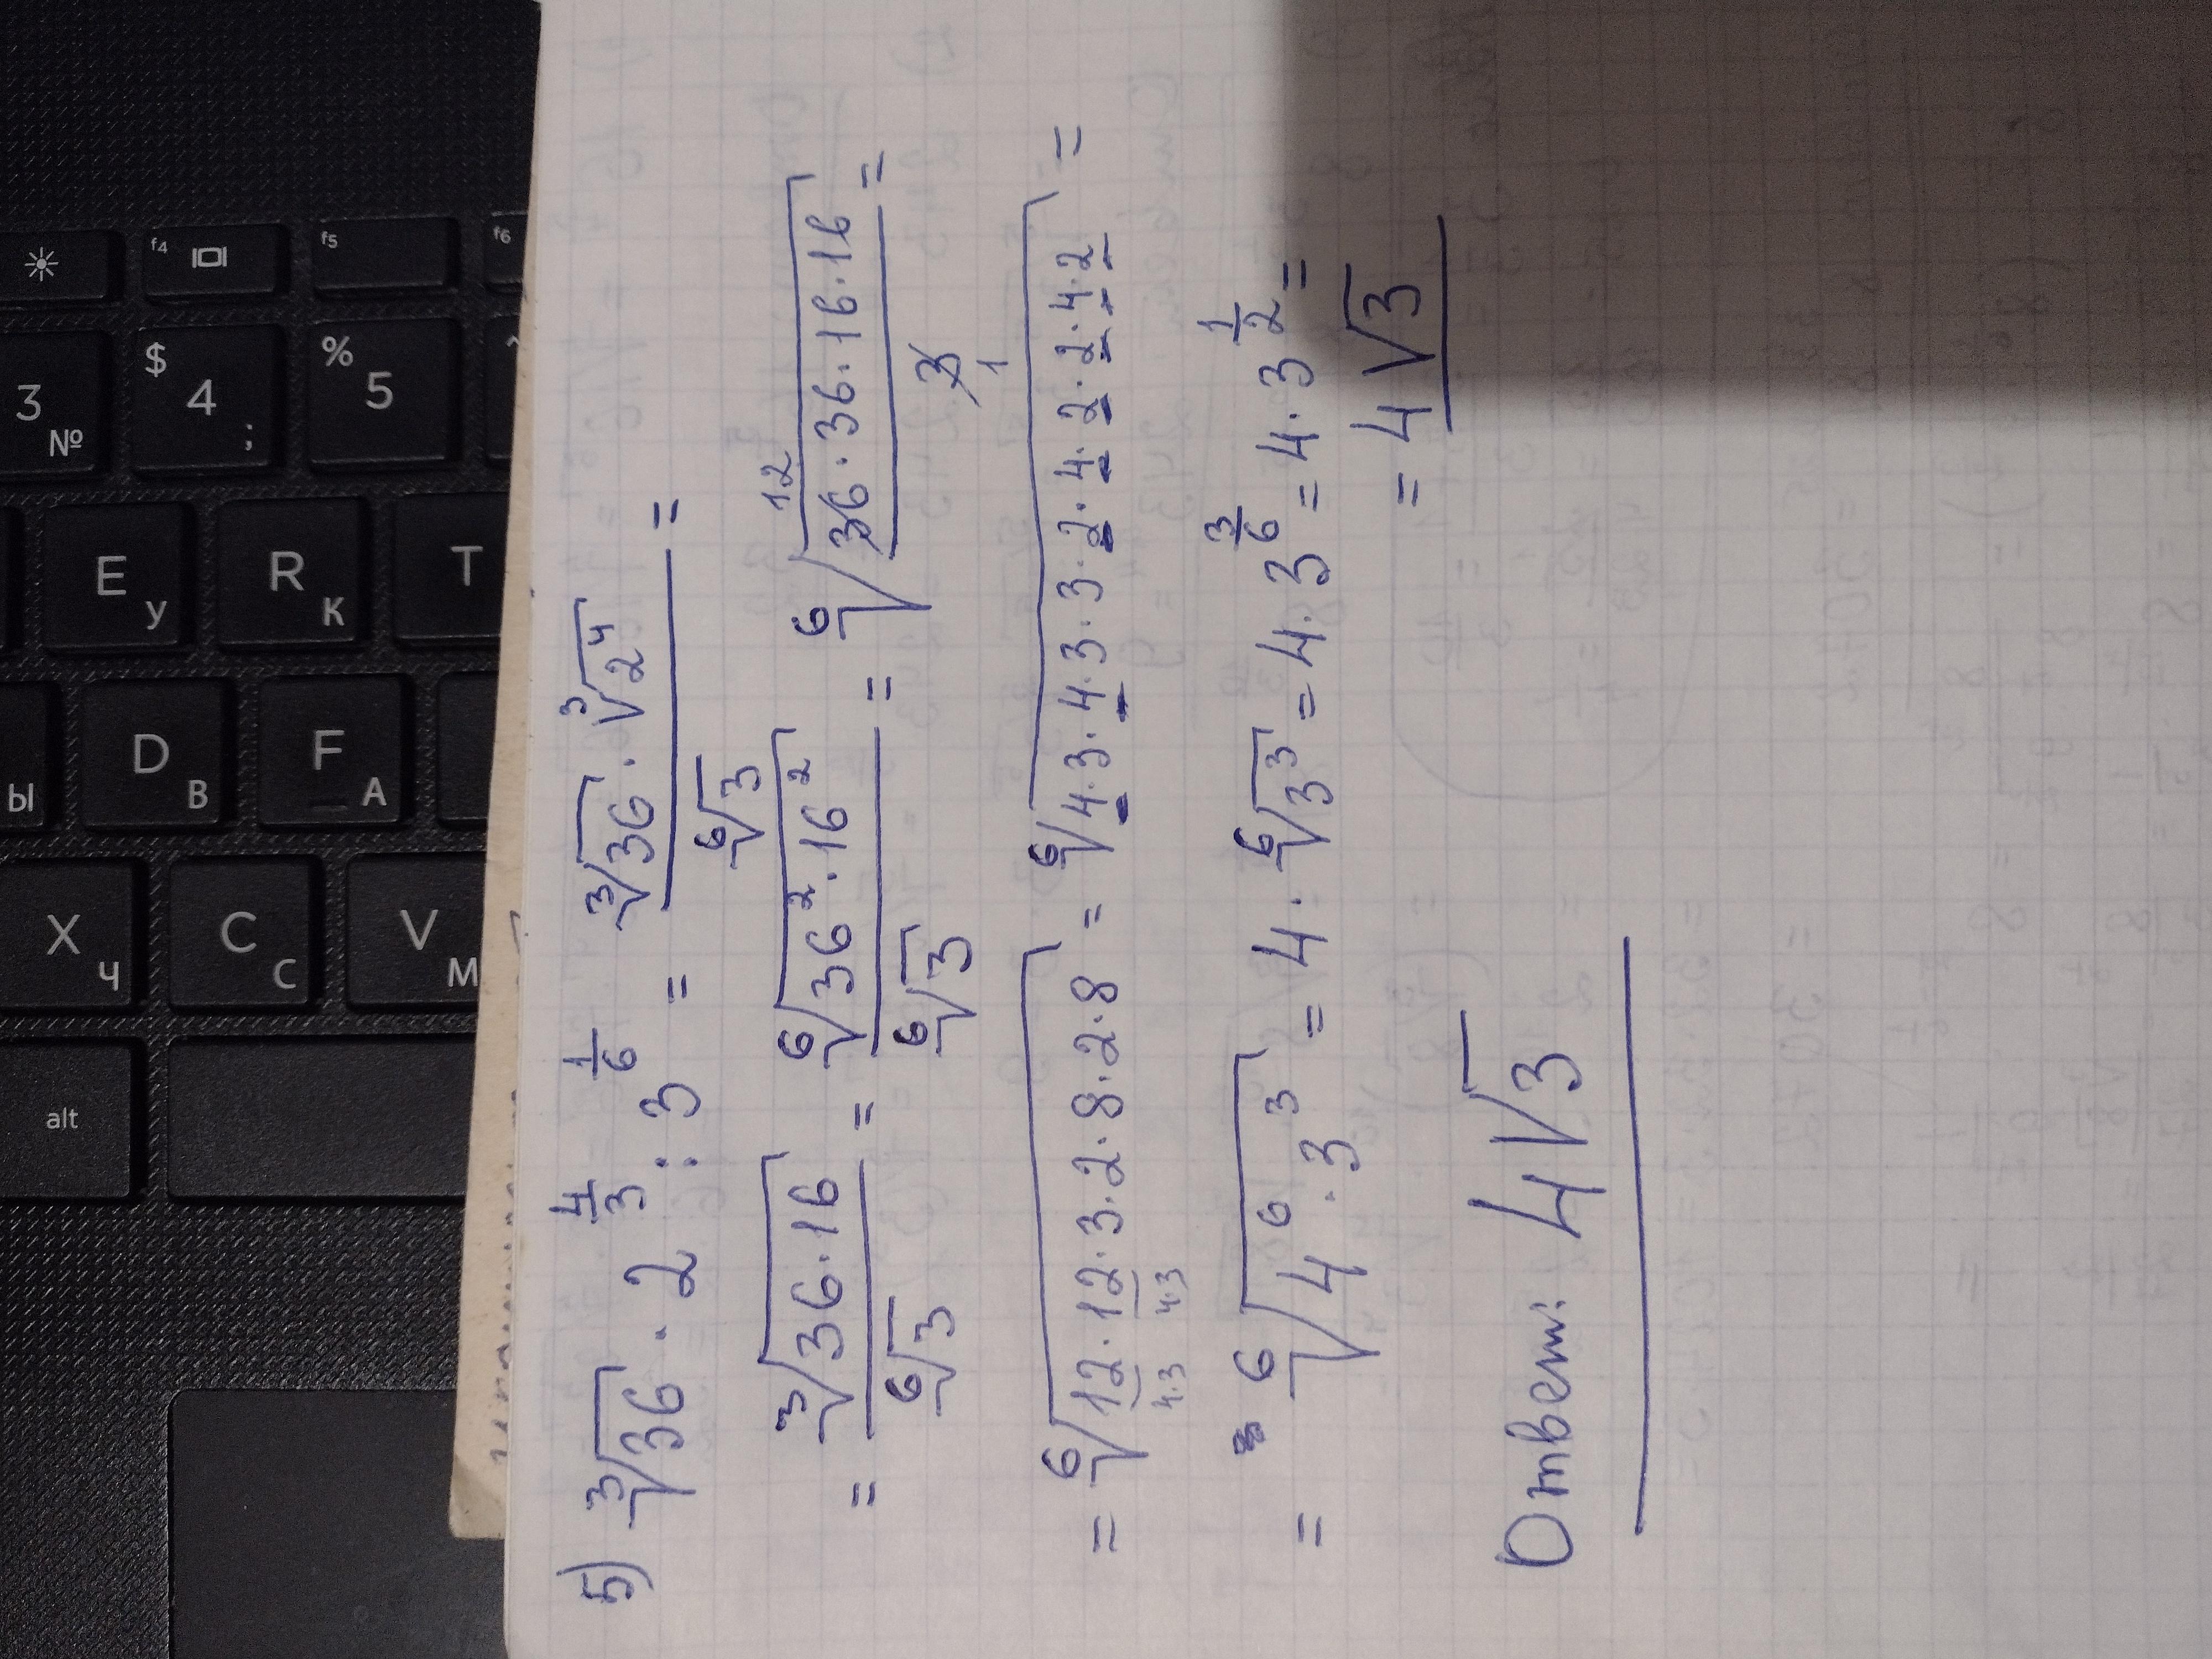 5) ∛36 · 2^(4/3) : 3^(1/6) = (∛36 · ∛(2^4)) / ⁶√3 =
= ∛(36·16) / ⁶√3 = ⁶√(36²·16²) / ⁶√3 = ⁶√((36·36·16·16) / 3) =
12
1
= ⁶√(12·12·3·2·8·2·8) = ⁶√(4·3·4·3·3·2·4·2·2·4·2) =
4·3 4·3
= ⁶√(4⁶·3³) = 4·⁶√(3³) = 4·3^(3/6) = 4·3^(1/2) =
= 4√3
Ответ: 4√3
f4
f5
f6
3 №
$ 4 ;
% 5
E У
R К
T
Ы
D В
F А
X Ч
C С
V М
alt